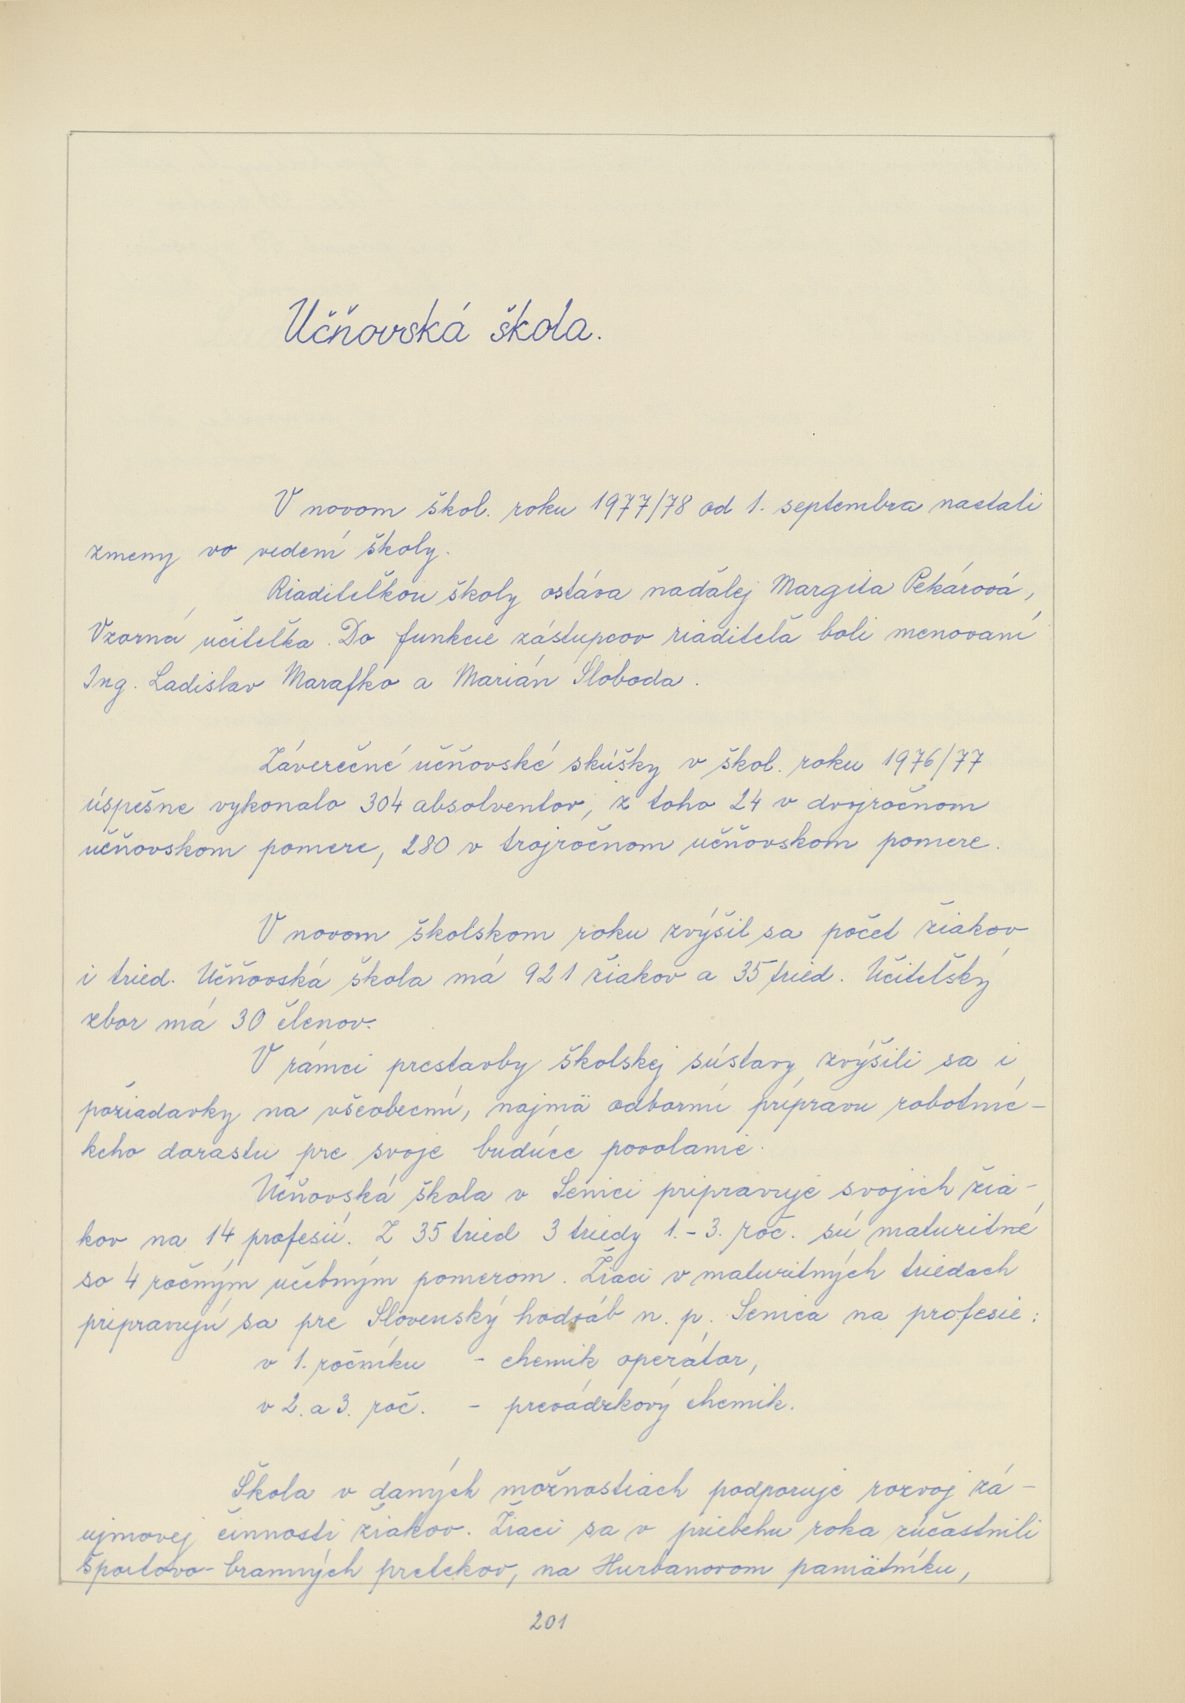 Učňovská škola.
V novom škol. roku 1977/78 od 1. septembra nastali
zmeny vo vedení školy.
Riaditeľkou školy ostáva naďalej Margita Pekárová,
Vzorná učiteľka. Do funkcie zástupcov riaditeľa boli menovaní
Ing. Ladislav Marafko a Marián Sloboda.
Záverečné učňovské skúšky v škol. roku 1976/77
úspešne vykonalo 304 absolventov, z toho 24 v dvojročnom
učňovskom pomere, 280 v trojročnom učňovskom pomere.
V novom školskom roku zvýšil sa počet žiakov
i tried. Učňovská škola má 921 žiakov a 35 tried. Učiteľský
zbor má 30 členov.
V rámci prestavby školskej sústavy zvýšili sa i
požiadavky na všeobecnú, najmä odbornú prípravu robotníc-
keho dorastu pre svoje budúce povolanie.
Učňovská škola v Senici pripravuje svojich žia-
kov na 14 profesií. Z 35 tried 3 triedy 1.-3. roč. sú maturitné
so 4 ročným učebným pomerom. Žiaci v maturitných triedach
pripravujú sa pre Slovenský hodváb n. p. Senica na profesie:
v 1. ročníku - chemik operátor,
v 2. a 3. roč. - prevádzkový chemik.
Škola v daných možnostiach podporuje rozvoj zá-
ujmovej činnosti žiakov. Žiaci sa v priebehu roka zúčastnili
športovo-branných pretekov, na Hurbanovom pamätníku,
201